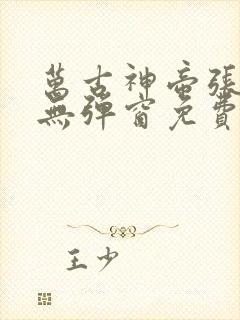 萬古神帝張
無彈窗免費
王少